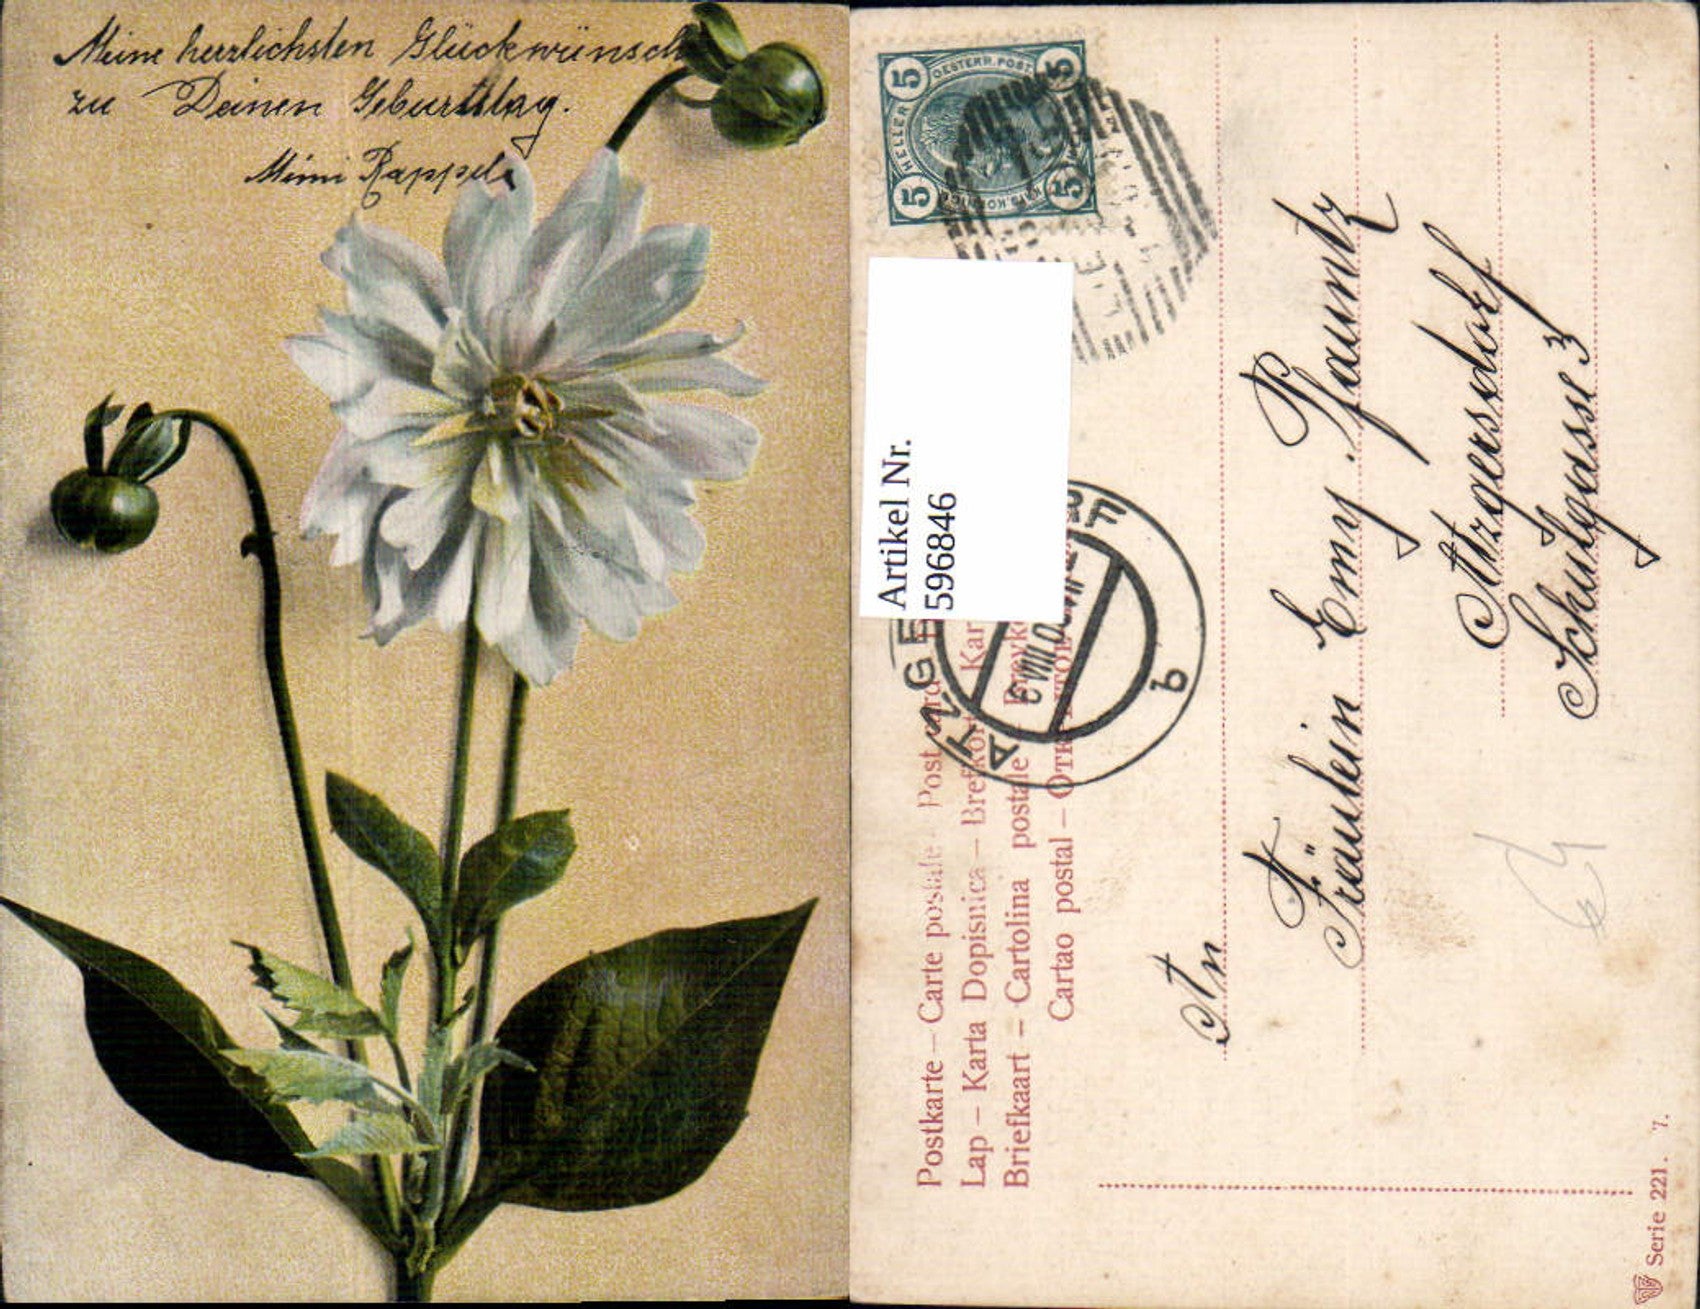 Meine herzlichsten Glückwünsch
zu Deinen Geburtstag.
Mimi Rappel
5 OESTERR. POST. 5
HELLER
5 5
Artikel Nr.
596846
ATZGE RF
6 VIII
b
Postkarte – Carte postale Post
Lap – Karta Dopisnica – Brefkort Kar
Briefkaart – Cartolina postale
Cartao postal –
An
Fräulein Emy Pfauntz
Atzgersdorf
Schulgasse 3
Serie 221. 7.